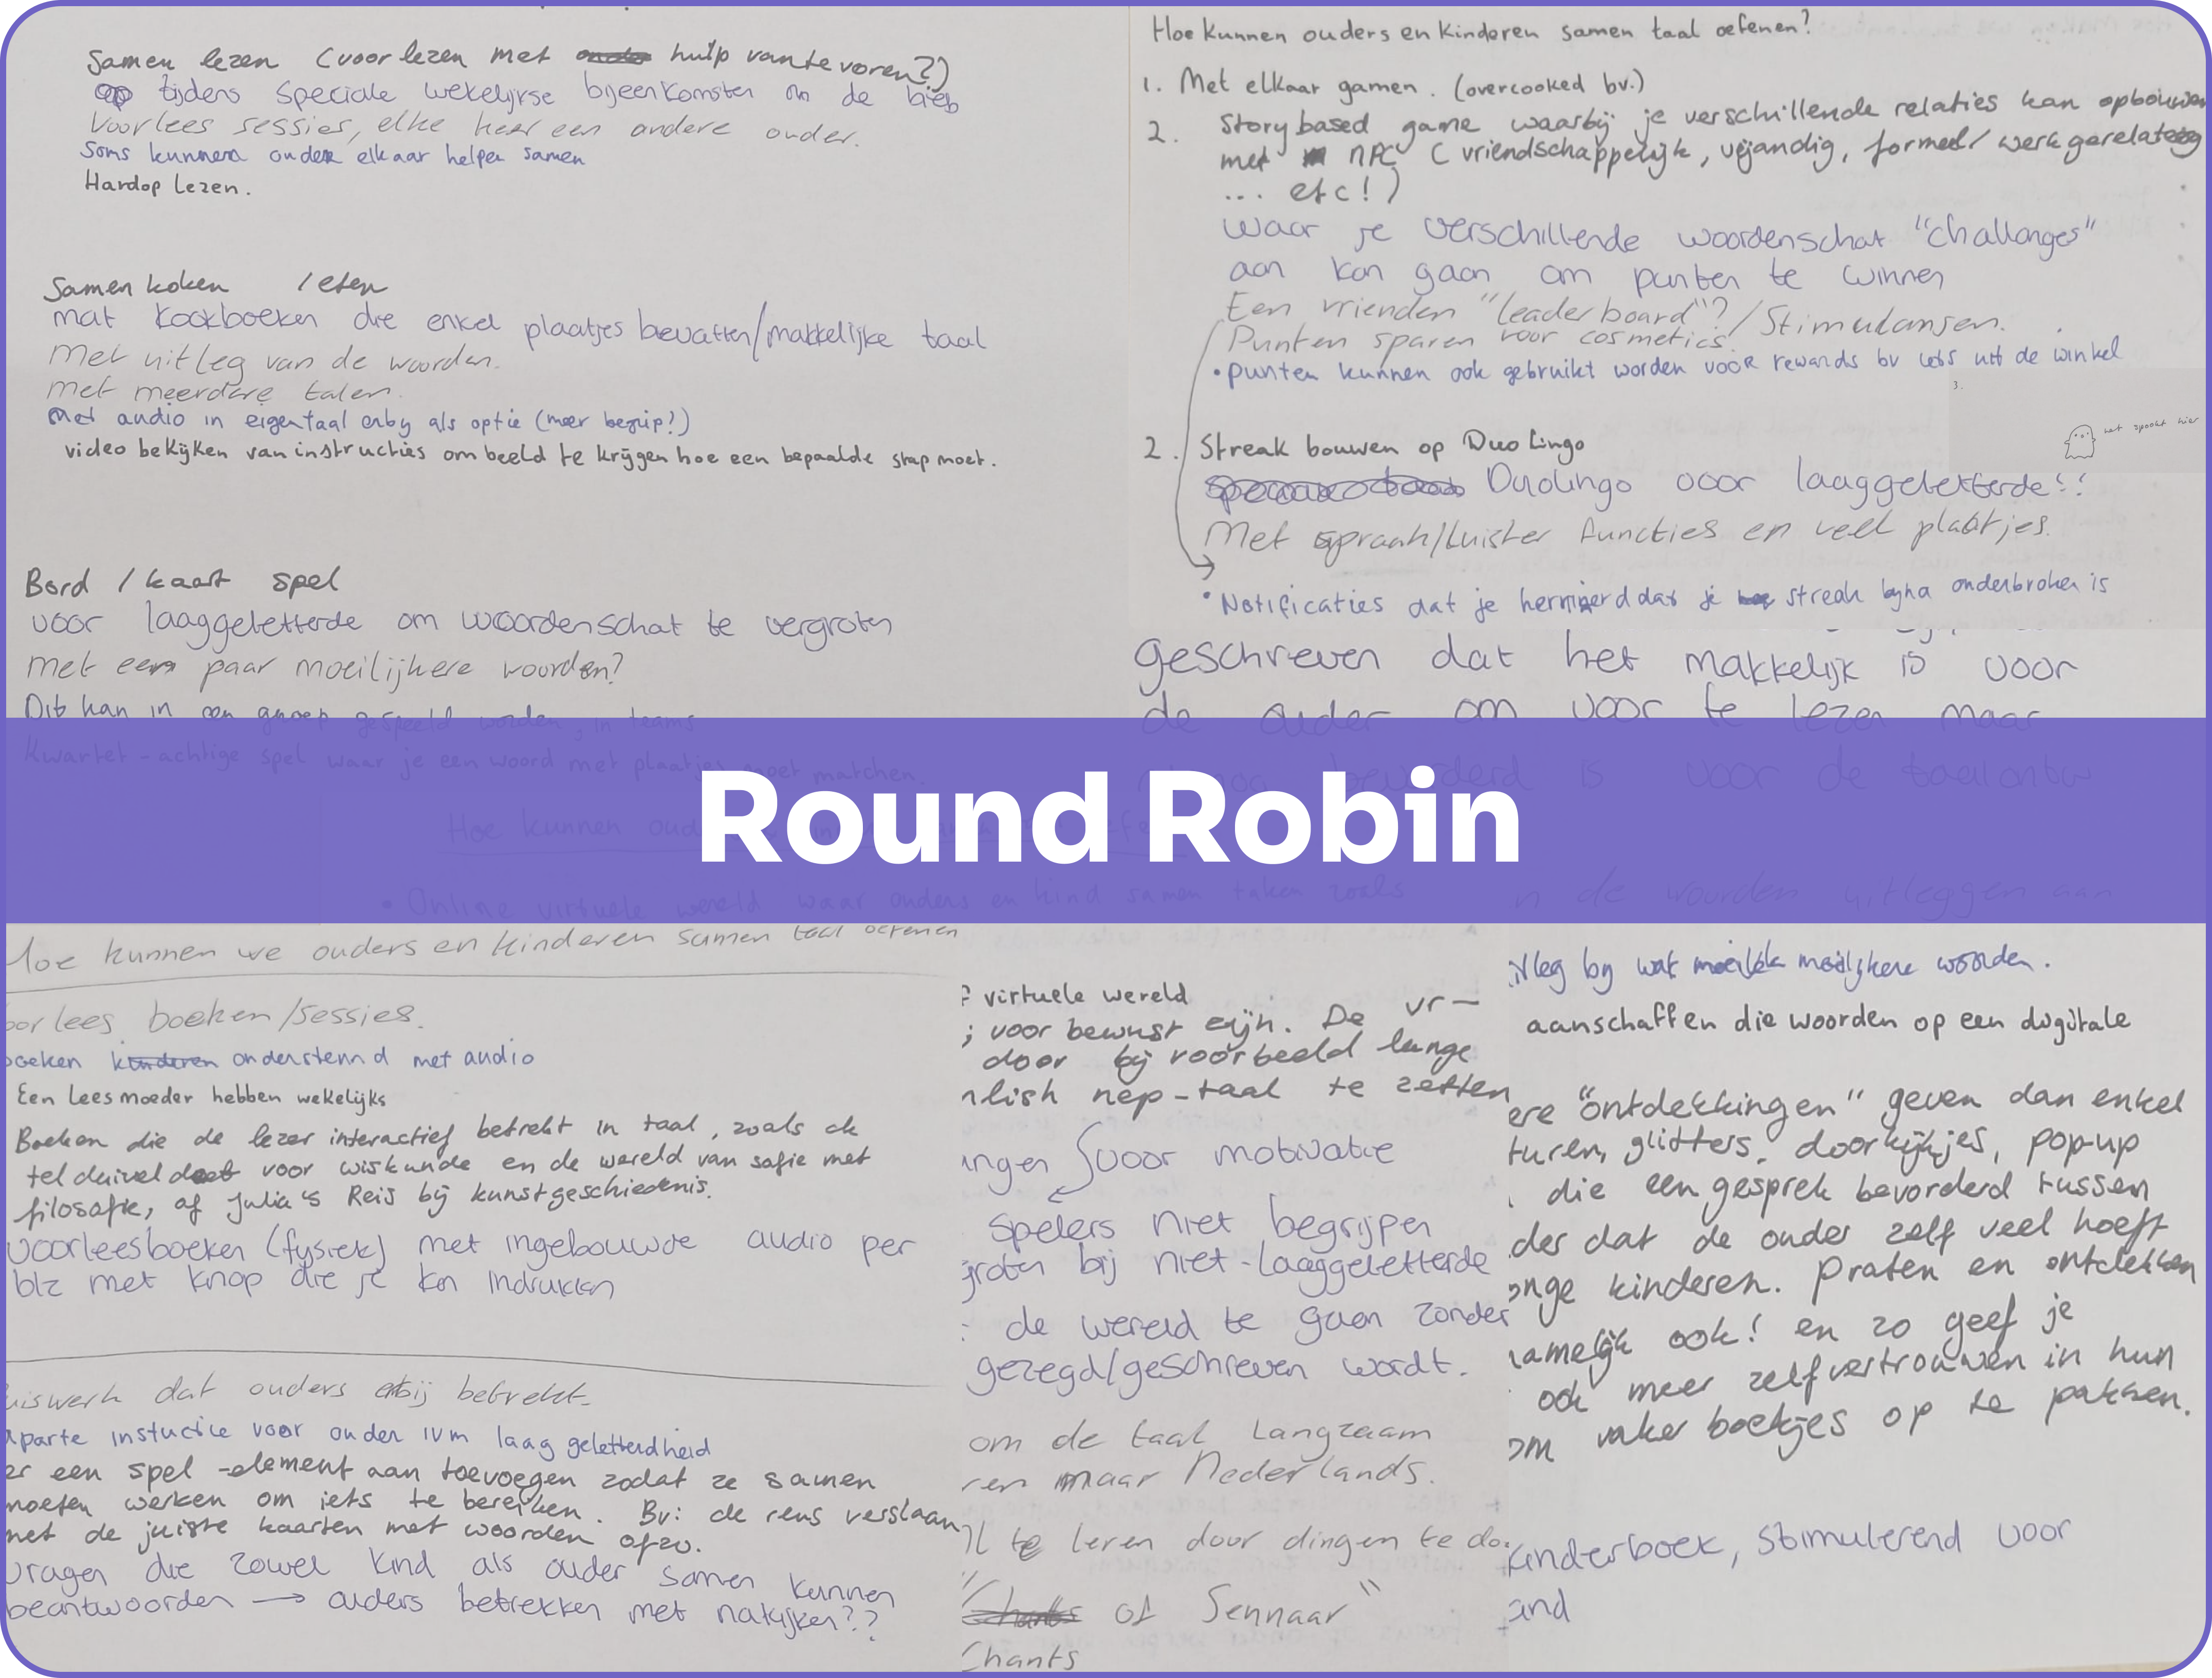 Samen lezen (voorlezen met hulp van te voren?)
tijdens speciale wekelijkse bijeenkomsten in de bieb
Voorlees sessies, elke keer een andere ouder.
Soms kunnen ouder elkaar helpen samen
Hardop lezen.
Samen koken / eten
met kookboeken die enkel plaatjes bevatten/makkelijke taal
Met uitleg van de woorden.
met meerdere talen.
Met audio in eigen taal erby als optie (meer begrip?)
video bekijken van instructies om beeld te krijgen hoe een bepaalde stap moet.
Bord / kaart spel
voor laaggeletterde om woordenschat te vergroten
met een paar moeilijkere woorden?
Dit kan in een groep gespeeld worden, in teams
Kwartet-achtige spel waar je een woord met plaatjes moet matchen.
Hoe kunnen ouders en kinderen samen taal oefenen?
1. Met elkaar gamen. (overcooked bv.)
2. Story based game waarbij je verschillende relaties kan opbouwen
met NPC (vriendschappelijk, vijandig, formeel/werkgerelateerd
... etc!)
waar je verschillende woordenschat "challanges"
aan kan gaan om punten te winnen
Een vrienden "leaderboard"?/Stimulansen.
Punten sparen voor cosmetics.
• punten kunnen ook gebruikt worden voor rewards bv iets uit de winkel
3.
het spookt hier
2. Streak bouwen op Duo Lingo
Duolingo voor laaggeletterde!!
Met spraak/luister functies en veel plaatjes.
• Notificaties dat je herrinerd dat je streak byna onderbroken is
geschreven dat het makkelijk is voor
de ouder om voor te lezen maar
bevorderd is voor de taalontw
Round Robin
Hoe kunnen
• Online virtuele wereld waar ouders en kind samen taken zoals
in de woorden uitleggen aan
Hoe kunnen we ouders en kinderen samen taal oefenen
oorlees boeken/sessies.
boeken ondersteund met audio
Een Leesmoeder hebben wekelijks
Boeken die de lezer interactief betrekt in taal, zoals de
telduivel voor wiskunde en de wereld van sofie met
filosofie, of Julia's Reis bij kunstgeschiedenis.
voorleesboeken (fysiek) met ingebouwde audio per
blz met knop die je kan indrukken
uiswerk dat ouders erbij betrekt.
aparte instuctie voor ouder ivm laag geletterdheid
er een spel-element aan toevoegen zodat ze samen
moeten werken om iets te bereiken. Bv: de reus verslaan
met de juiste kaarten met woorden ofzo.
vragen die zowel kind als ouder samen kunnen
beantwoorden → ouders betrekken met nakijken??
virtuele wereld
; voor bewust zijn. De vr-
door bij voorbeeld lange
nlish nep-taal te zetten
ingen voor motivatie
spelers niet begrijpen
groten bij niet-laaggeletterde
: de wereld te gaan zonder
gezegd/geschreven wordt.
om de taal langzaam
ren maar Nederlands.
te leren door dingen te do.
"Chants of Sennaar"
Chants
itleg by wat moeilijkere woorden.
aanschaffen die woorden op een digitale
ere "ontdekkingen" geven dan enkel
turen, glitters, doorkijkjes, pop-up
die een gesprek bevorderd tussen
der dat de ouder zelf veel hoeft
onge kinderen. Praten en ontdekken
namelijk ook! en zo geef je
ook meer zelfvertrouwen in hun
om vaker boekjes op te pakken.
kinderboek, stimulerend voor
and